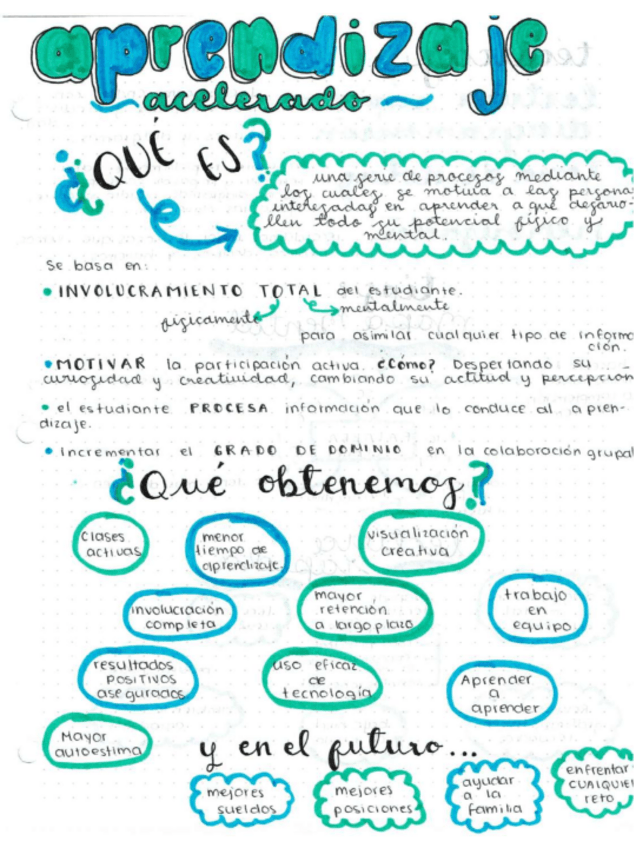 aprendizaje
acelerado
¿QUÉ ES?
una serie de procesos mediante
los cuales se motiva a las persona
interesadas en aprender a que desarro-
llen todo su potencial físico y
mental.
Se basa en:
• INVOLUCRAMIENTO TOTAL del estudiante.
físicamente mentalmente
para asimilar cualquier tipo de informa
ción.
• MOTIVAR la participación activa. ¿Cómo? Despertando su
curiosidad y creatividad, cambiando su actitud y percepción
• el estudiante PROCESA información que lo conduce al apren-
dizaje.
• Incrementar el GRADO DE DOMINIO en la colaboración grupal
¿Qué obtenemos?
clases
activas
menor
tiempo de
aprendizaje.
visualización
creativa
involucración
completa
mayor
retención
a largo plazo
trabajo
en
equipo
resultados
POSITIVOS
asegurados
uso eficaz
de
tecnología
Aprender
a
aprender
Mayor
autoestima
y en el futuro...
mejores
sueldos
mejores
posiciones
ayudar
a la
familia
enfrentar
CUALQUIER
reto